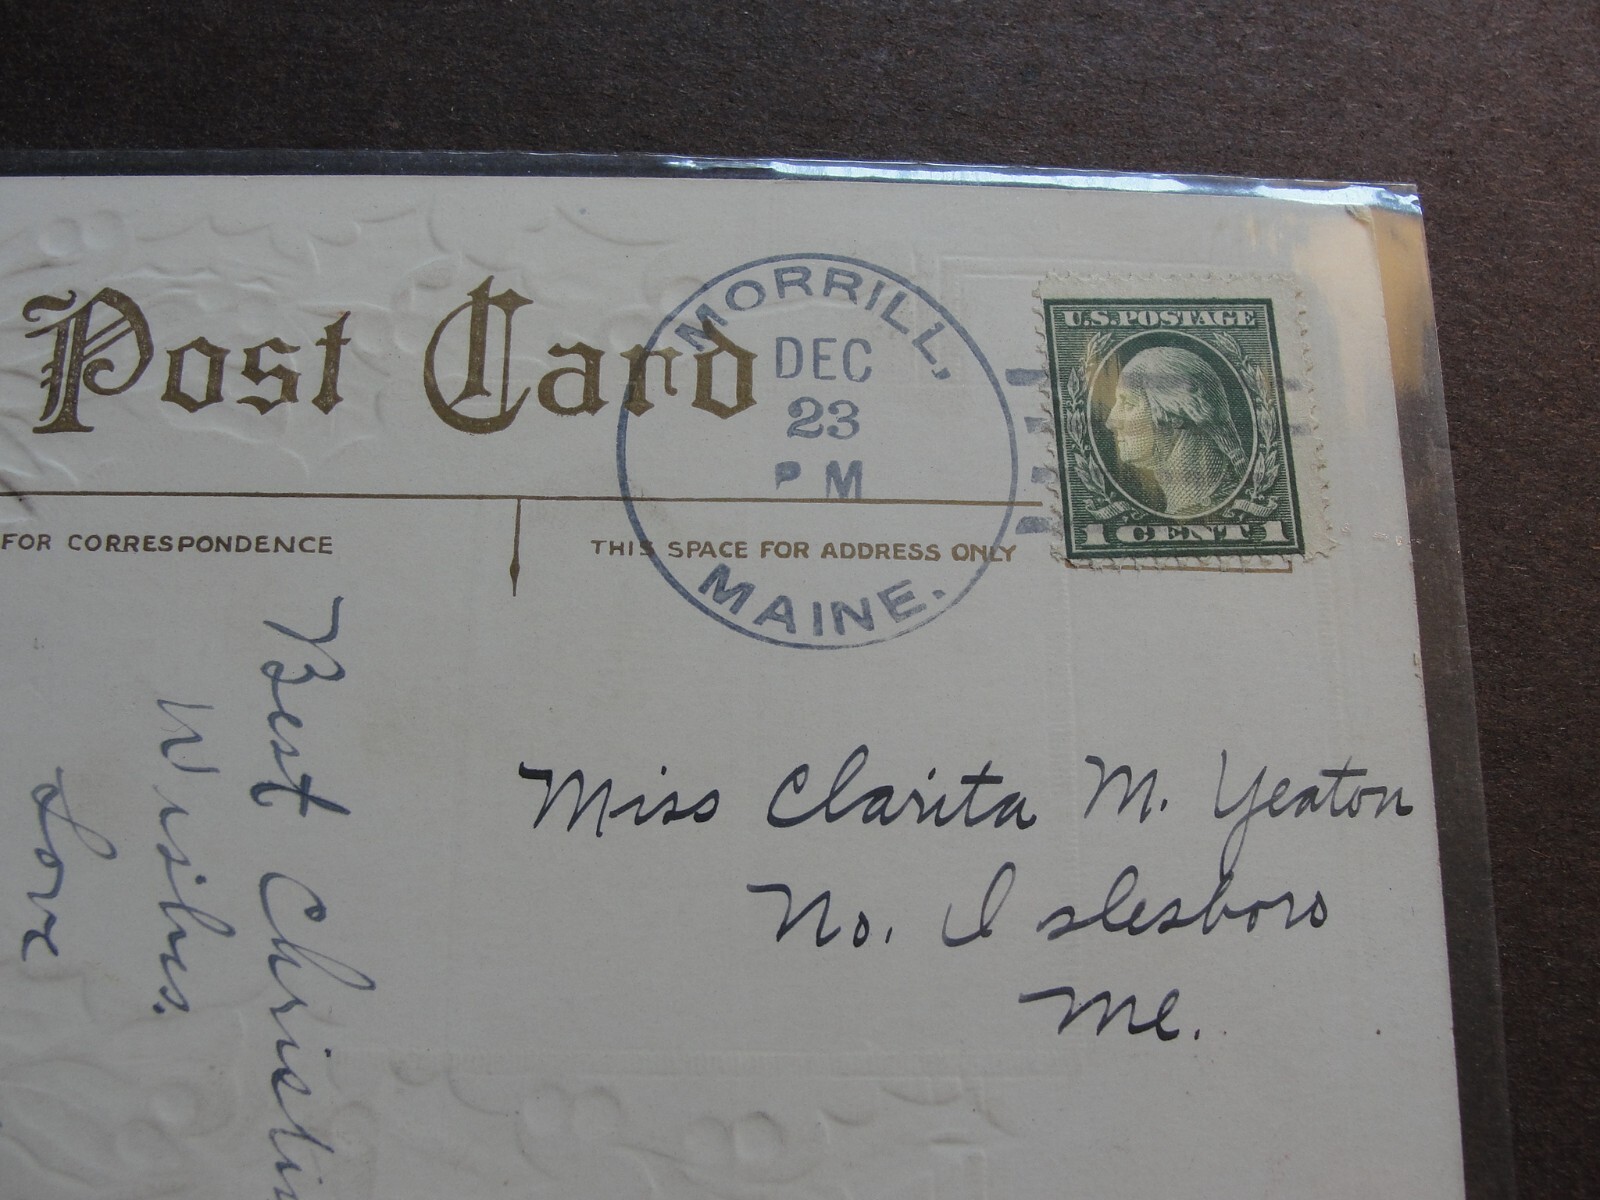 Post Card
MORRILL,
DEC
23
PM
MAINE.
U.S. POSTAGE
1 CENT 1
FOR CORRESPONDENCE
THIS SPACE FOR ADDRESS ONLY
Best Christm
Wishes.
Love
Miss Clarita M. Yeaton
No. Islesboro
Me.